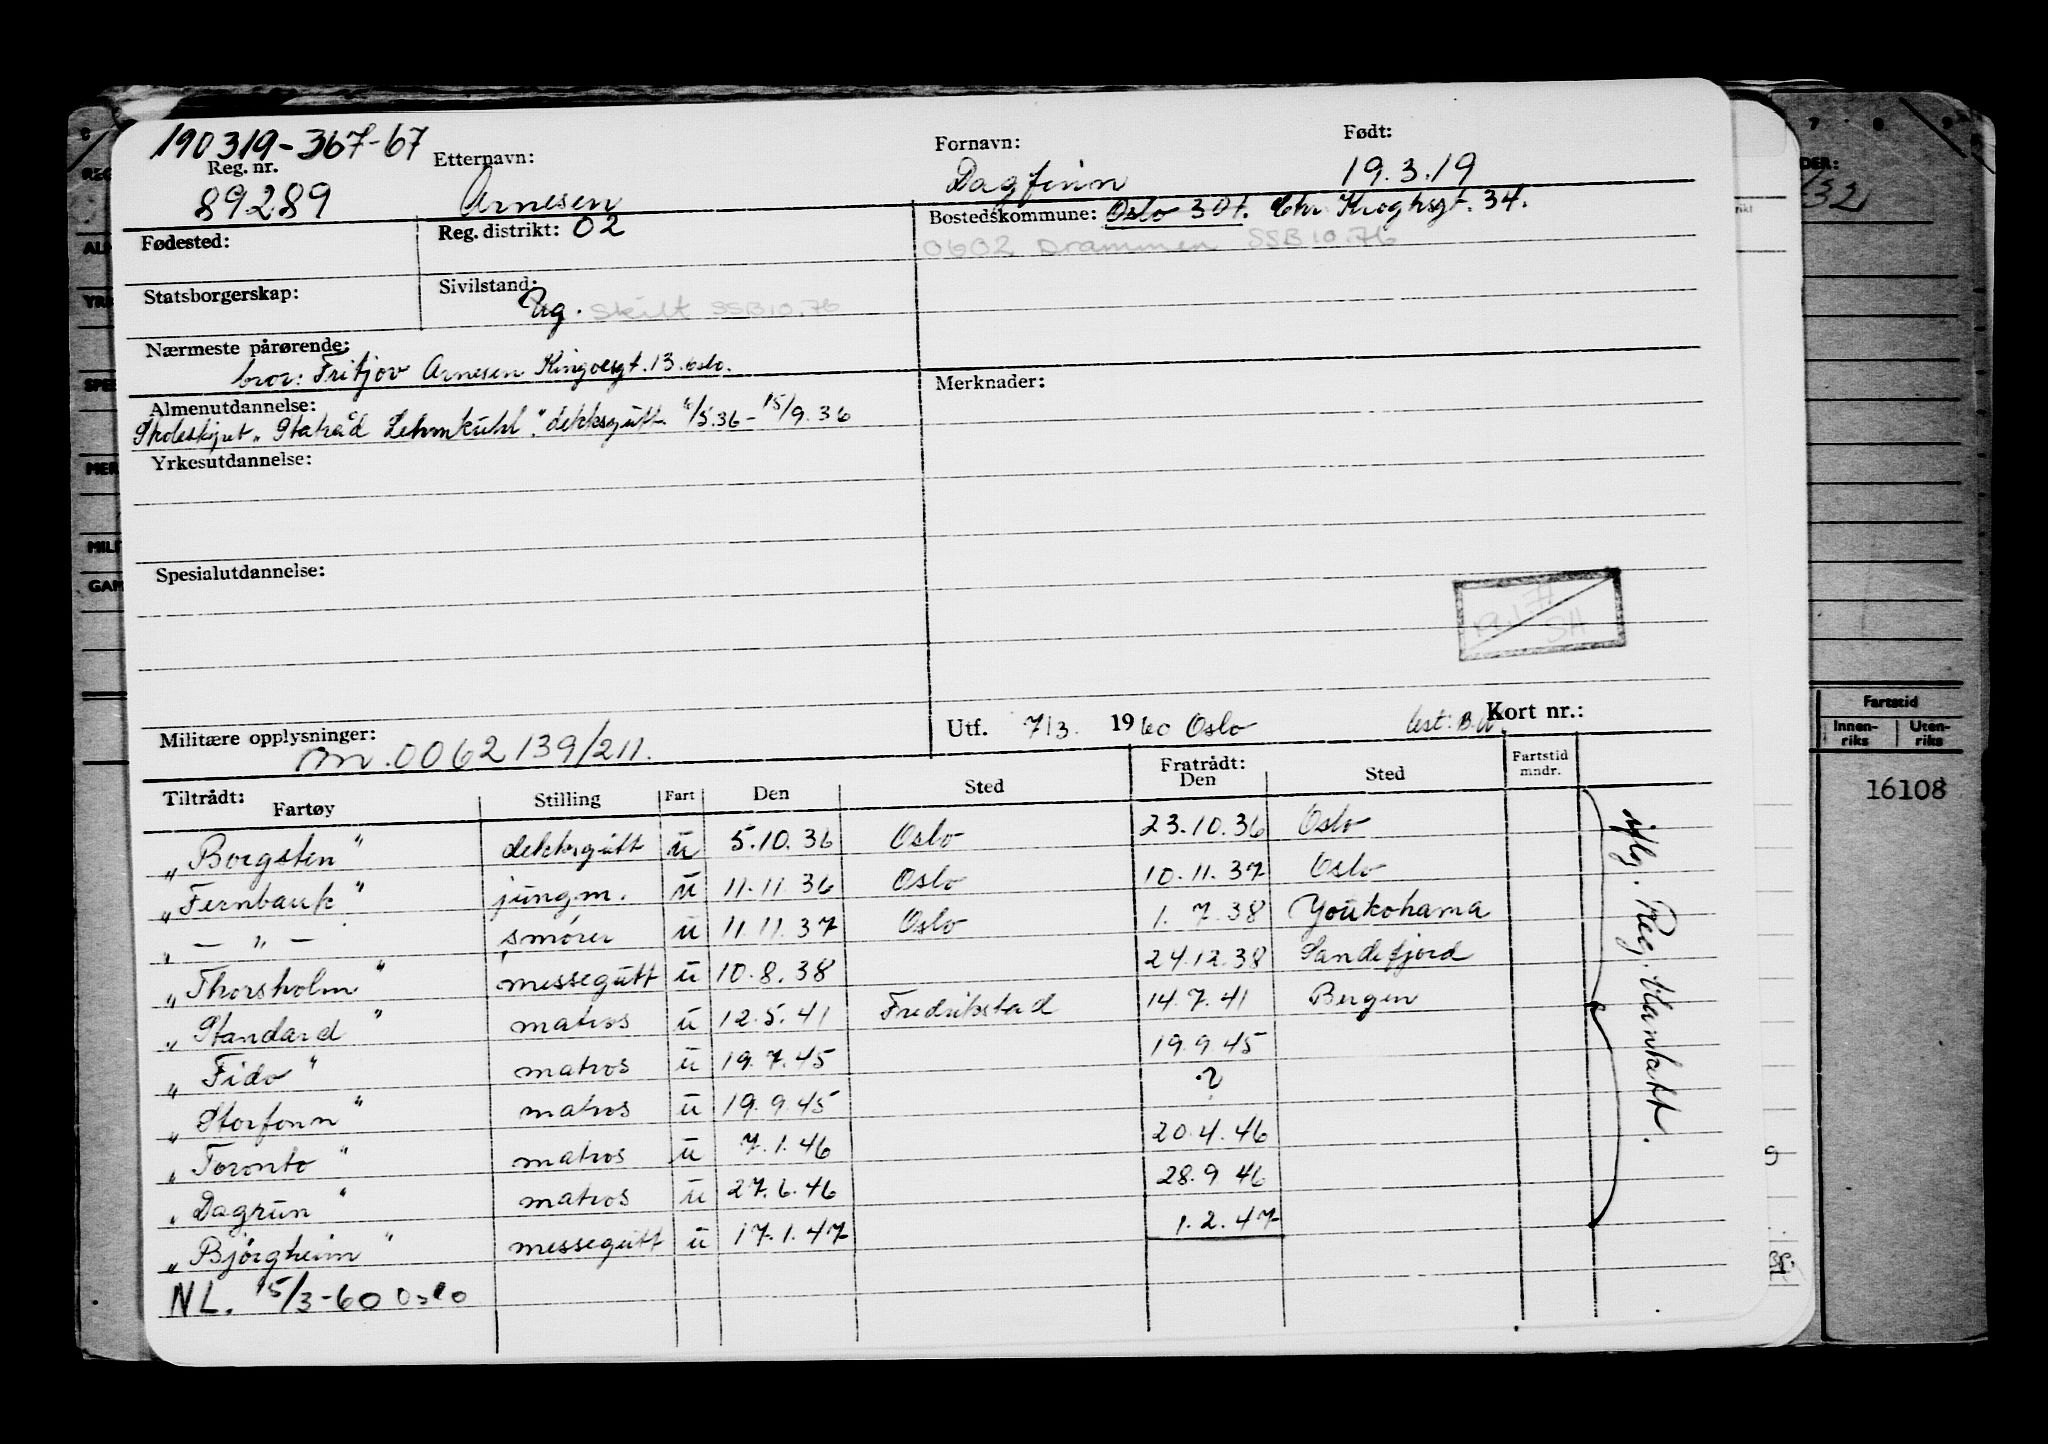 190319-367-67
Reg. nr. Etternavn: Fornavn: Født:
89289 Arnesen Dagfinn 19.3.19
Fødested: Reg. distrikt: 02 Bostedskommune: Oslo 307. Chr. Kroghsgt. 34.
0602 Drammen SSB 10.76
Statsborgerskap: Sivilstand:
Ug. Skilt SSB 10.76
Nærmeste pårørende:
bror: Fritjov Arnesen Kingosgt. 13. Oslo.
Almenutdannelse: Merknader:
Skoleskipet "Statsråd Lehmkuhl". dekksgutt. /5.36 - 15/9.36
Yrkesutdannelse:
Spesialutdannelse:
Militære opplysninger: Utf. 7/3. 1960 Oslo Kort nr.:
m.0062139/211.
Tiltrådt: Fartøy Stilling Fart Den Sted Fratrådt: Den Sted Fartstid mndr.
"Borgsten" dekksgutt u 5.10.36 Oslo 23.10.36 Oslo
"Fernbank" jungm. u 11.11.36 Oslo 10.11.37 Oslo
" — " — smører u 11.11.37 Oslo 1.7.38 Youkohama
"Thorsholm" messegutt u 10.8.38 24.12.38 Sandefjord
"Standard" matros u 12.5.41 Fredrikstad 14.7.41 Bergen
"Fido" matros u 19.7.45 19.9.45
"Storfonn" matros u 19.9.45 ?
"Toronto" matros u 7.1.46 20.4.46
"Dagrun" matros u 27.6.46 28.9 46
"Bjørgheim" messegutt u 17.1.47 1.2.47
NL. 15/3-60 Oslo
iflg. Reg. Hankatt.
Fartstid
Innen-riks Uten-riks
16108